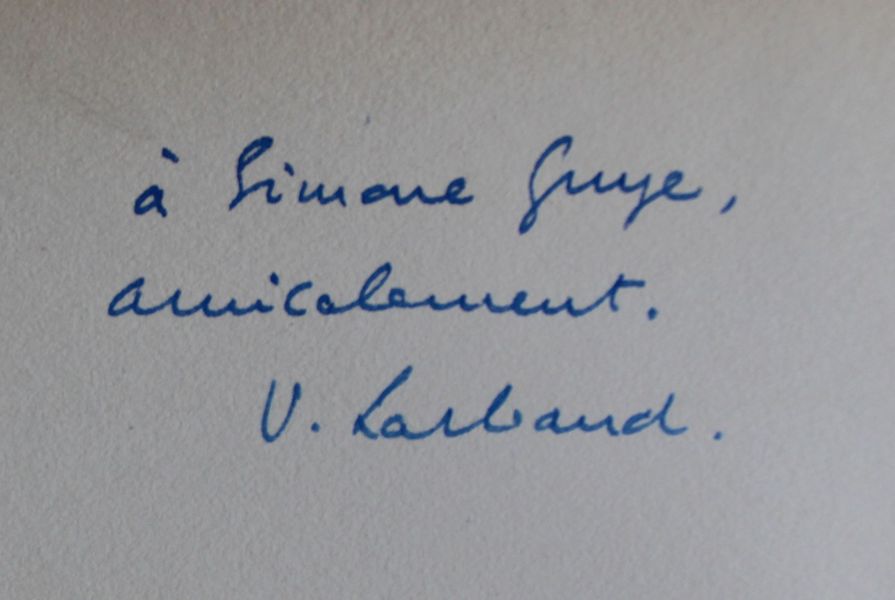 à Simone Guye,
amicalement.
V. Larbaud.